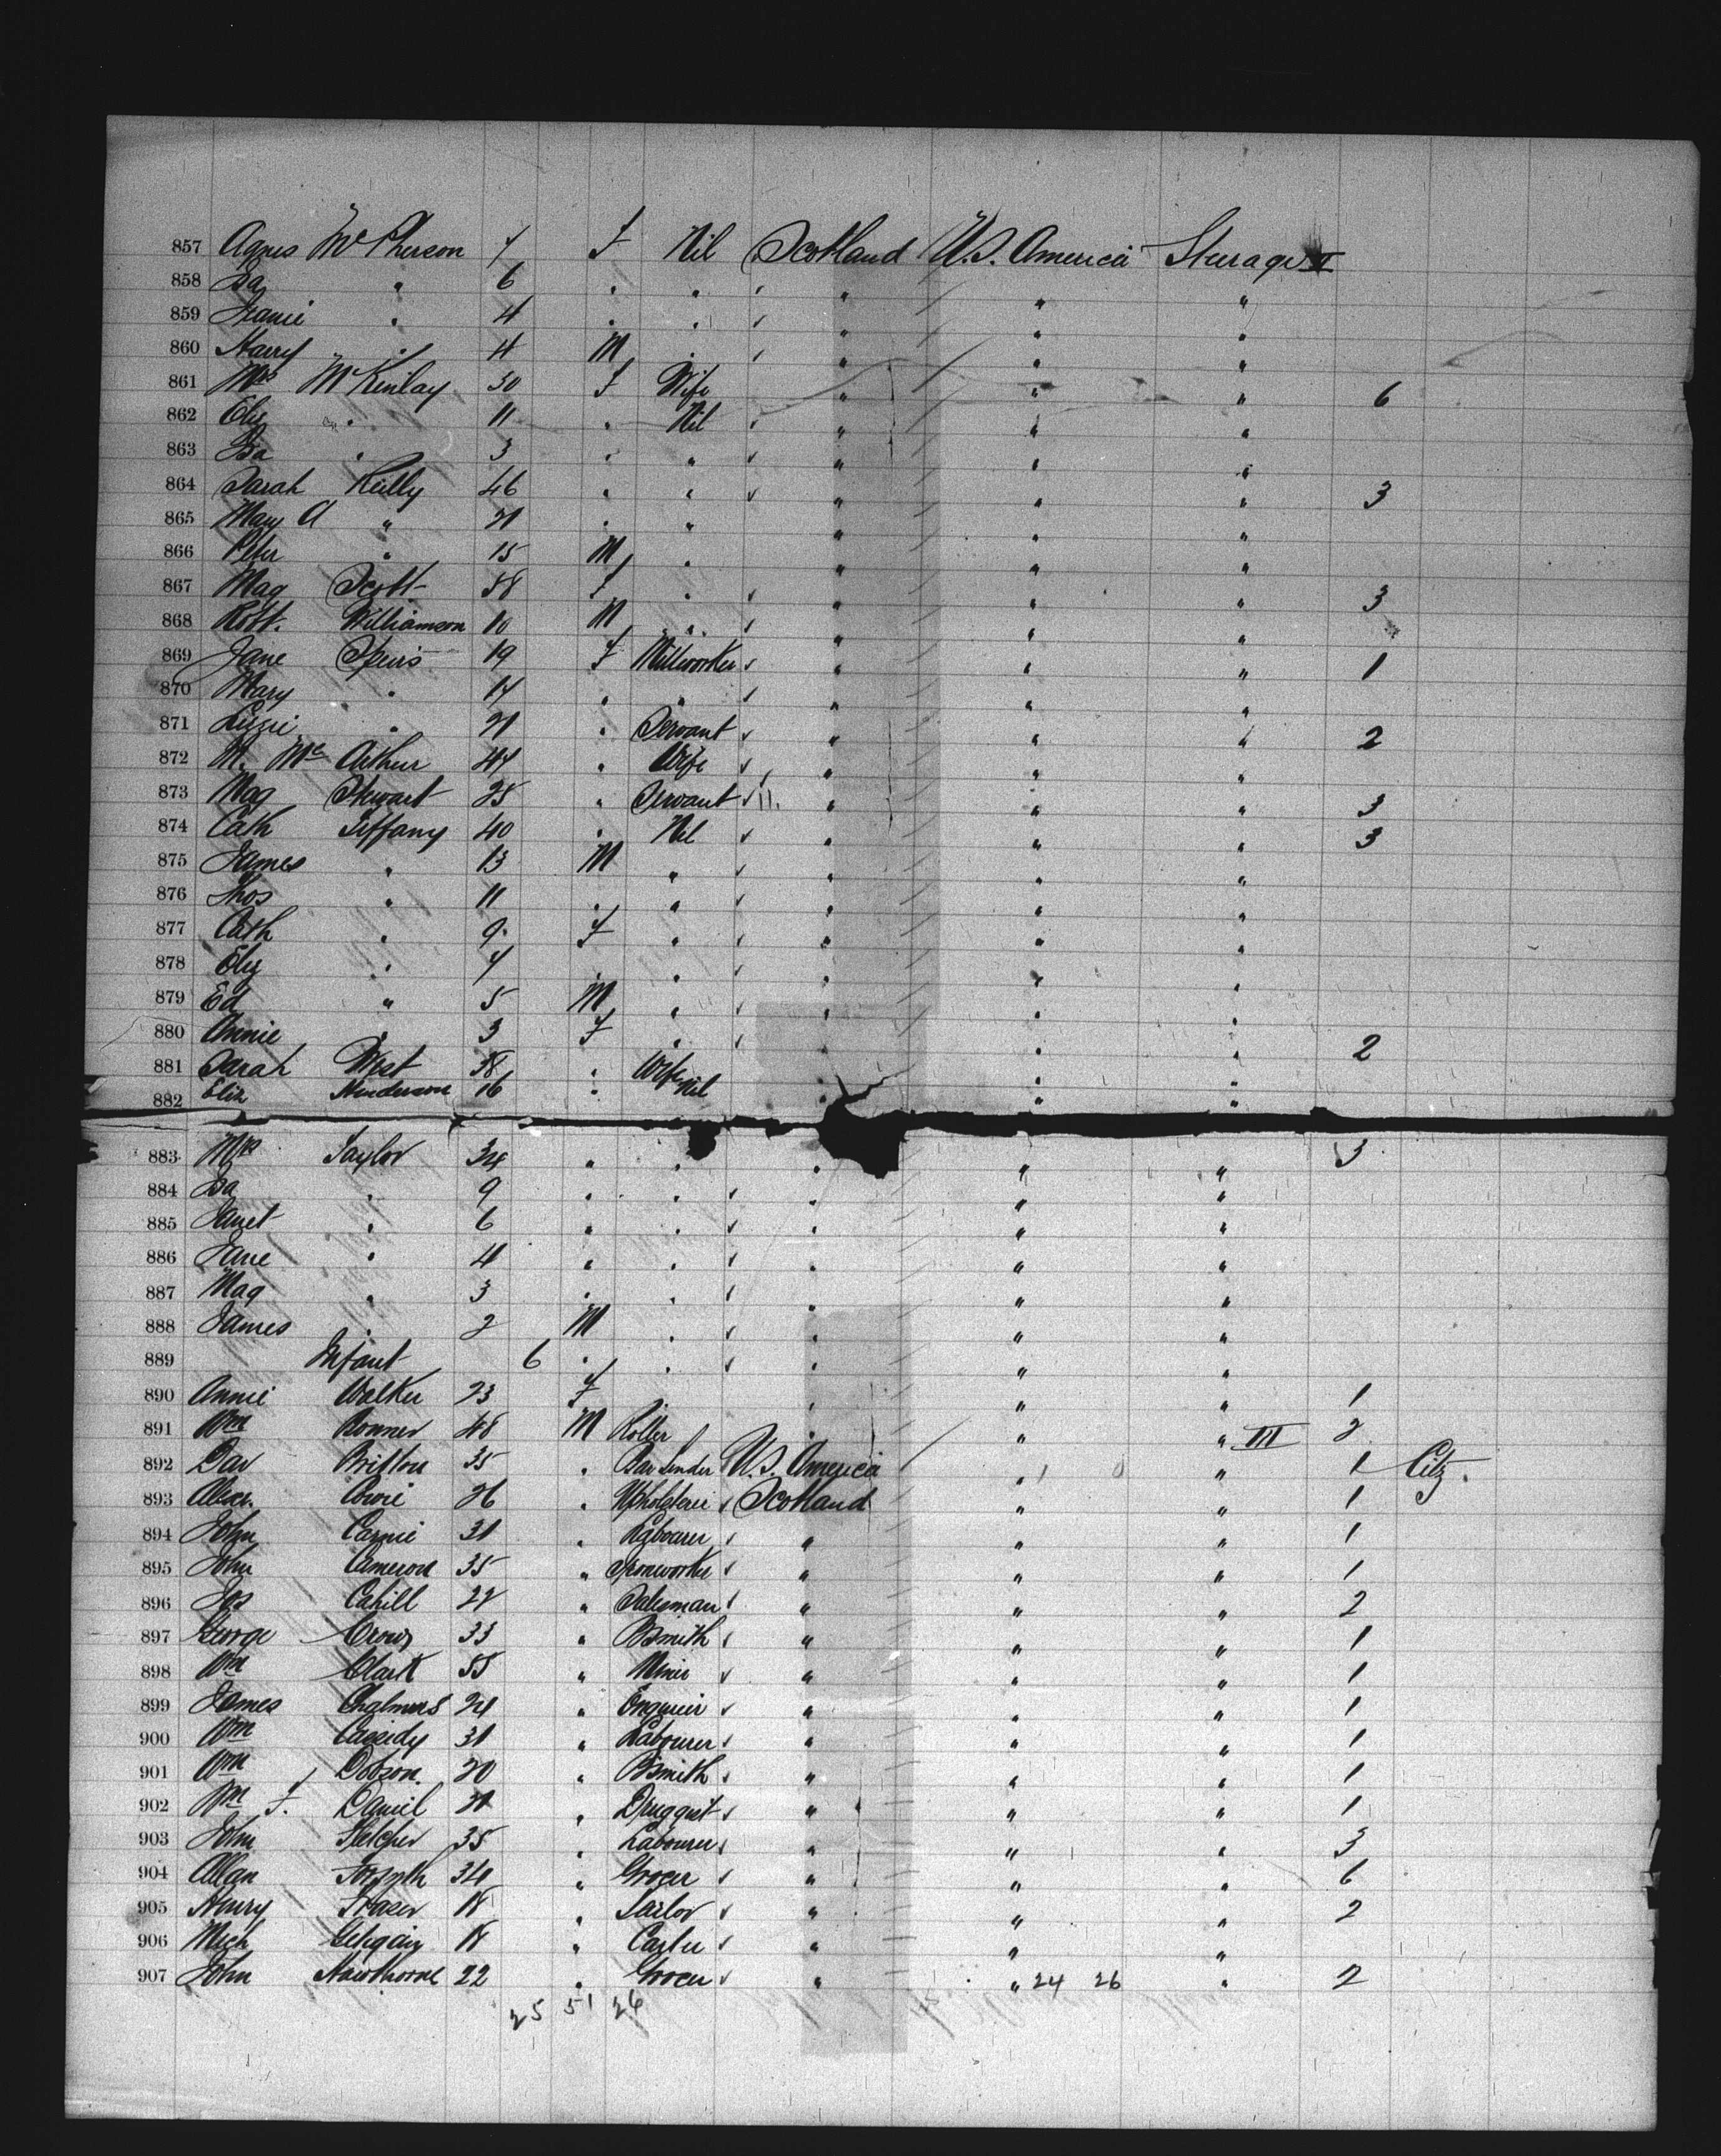 857 Agnes McPherson 7 F Nil Scotland U.S. America Steerage II
858 Isa " 6 " " " " "
859 Jeanie " 4 " " " " "
860 Harry " 4 M " " " "
861 Mrs McKinlay 30 F Wife " " " 6
862 Eliz " 11 " Nil " " "
863 Isa " 3 " " " " "
864 Sarah Reilly 46 " " " " " 3
865 Mary A " 21 " " " " "
866 Peter " 15 M " " " "
867 Mag Scott 58 F " " " " 3
868 Robt. Williamson 10 M " " " "
869 Jane Speirs 19 F Millworker " " " 1
870 Mary " 17 " " " " "
871 Lizzie " 21 " Servant " " " 2
872 M. McArthur 44 " Wife " " "
873 Mag Stewart 25 " Servant " " " 3
874 Cath Tiffany 40 " Nil " " " 3
875 James " 13 M " " " "
876 Thos " 11 " " " " "
877 Cath " 9 F " " " "
878 Eliz " 7 " " " " "
879 Ed " 5 M " " " "
880 Annie " 3 F " " " " 2
881 Sarah West 38 " Wife " " "
882 Eliz Henderson 16 " Nil " "
883 Mrs Taylor 34 " " " " " 3
884 Isa " 9 " " " " "
885 Janet " 6 " " " " "
886 Jane " 4 " " " " "
887 Mag " 3 " " " " "
888 James " 2 M " " " "
889 Infant 6 " " " " "
890 Annie Walker 23 F " " " " 1
891 Wm Bonner 48 M Roller " " " III 2
892 Dav Britton 35 " Bar Tender U.S. America " " 1 Citz.
893 Alexr. Cowie 26 " Upholsterer Scotland " " 1
894 John Carnie 31 " Labourer " " " 1
895 John Cameron 35 " Ironworker " " " 1
896 Jos Cahill 22 " Salesman " " " 2
897 George Crow 33 " Bsmith " " " 1
898 Wm Clark 55 " Miner " " " 1
899 James Chalmers 24 " Engineer " " " 1
900 Wm Cassidy 31 " Labourer " " " 1
901 Wm Dobson 20 " Bsmith " " " 1
902 Wm F. Daniel 21 " Druggist " " " 1
903 John Fletcher 35 " Labourer " " " 3
904 Allan Forsyth 34 " Grocer " " " 6
905 Henry Fraser 18 " Tailor " " " 2
906 Mich 18 " Carter " " "
907 John Hawthorne 22 " Grocer " " 24 26 " 2
25 51 26